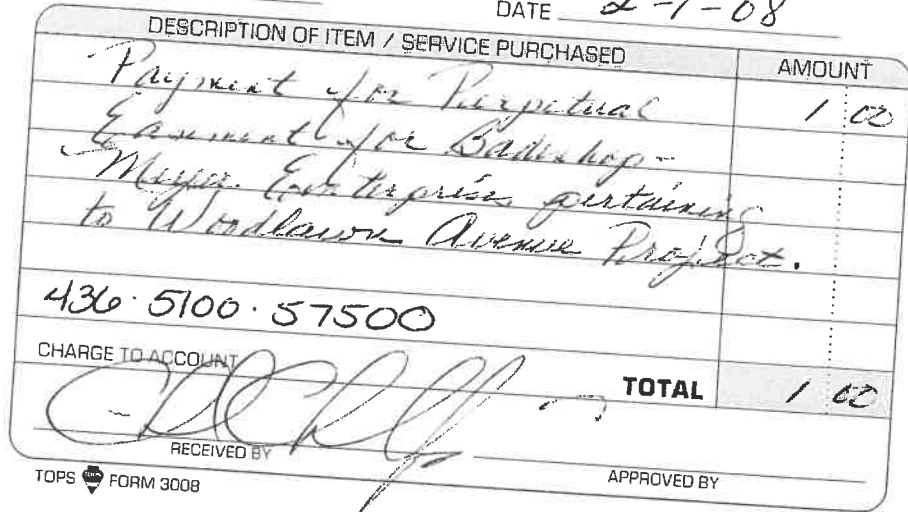 DATE 2-1-08
DESCRIPTION OF ITEM / SERVICE PURCHASED AMOUNT
Payment for Perpetual 1 00
Easement for Badishop-
Meyer Enterprises pertaining
to Woodlawn Avenue Project.
436.5100.57500
CHARGE TO ACCOUNT
TOTAL 1 00
RECEIVED BY
APPROVED BY
TOPS FORM 3008